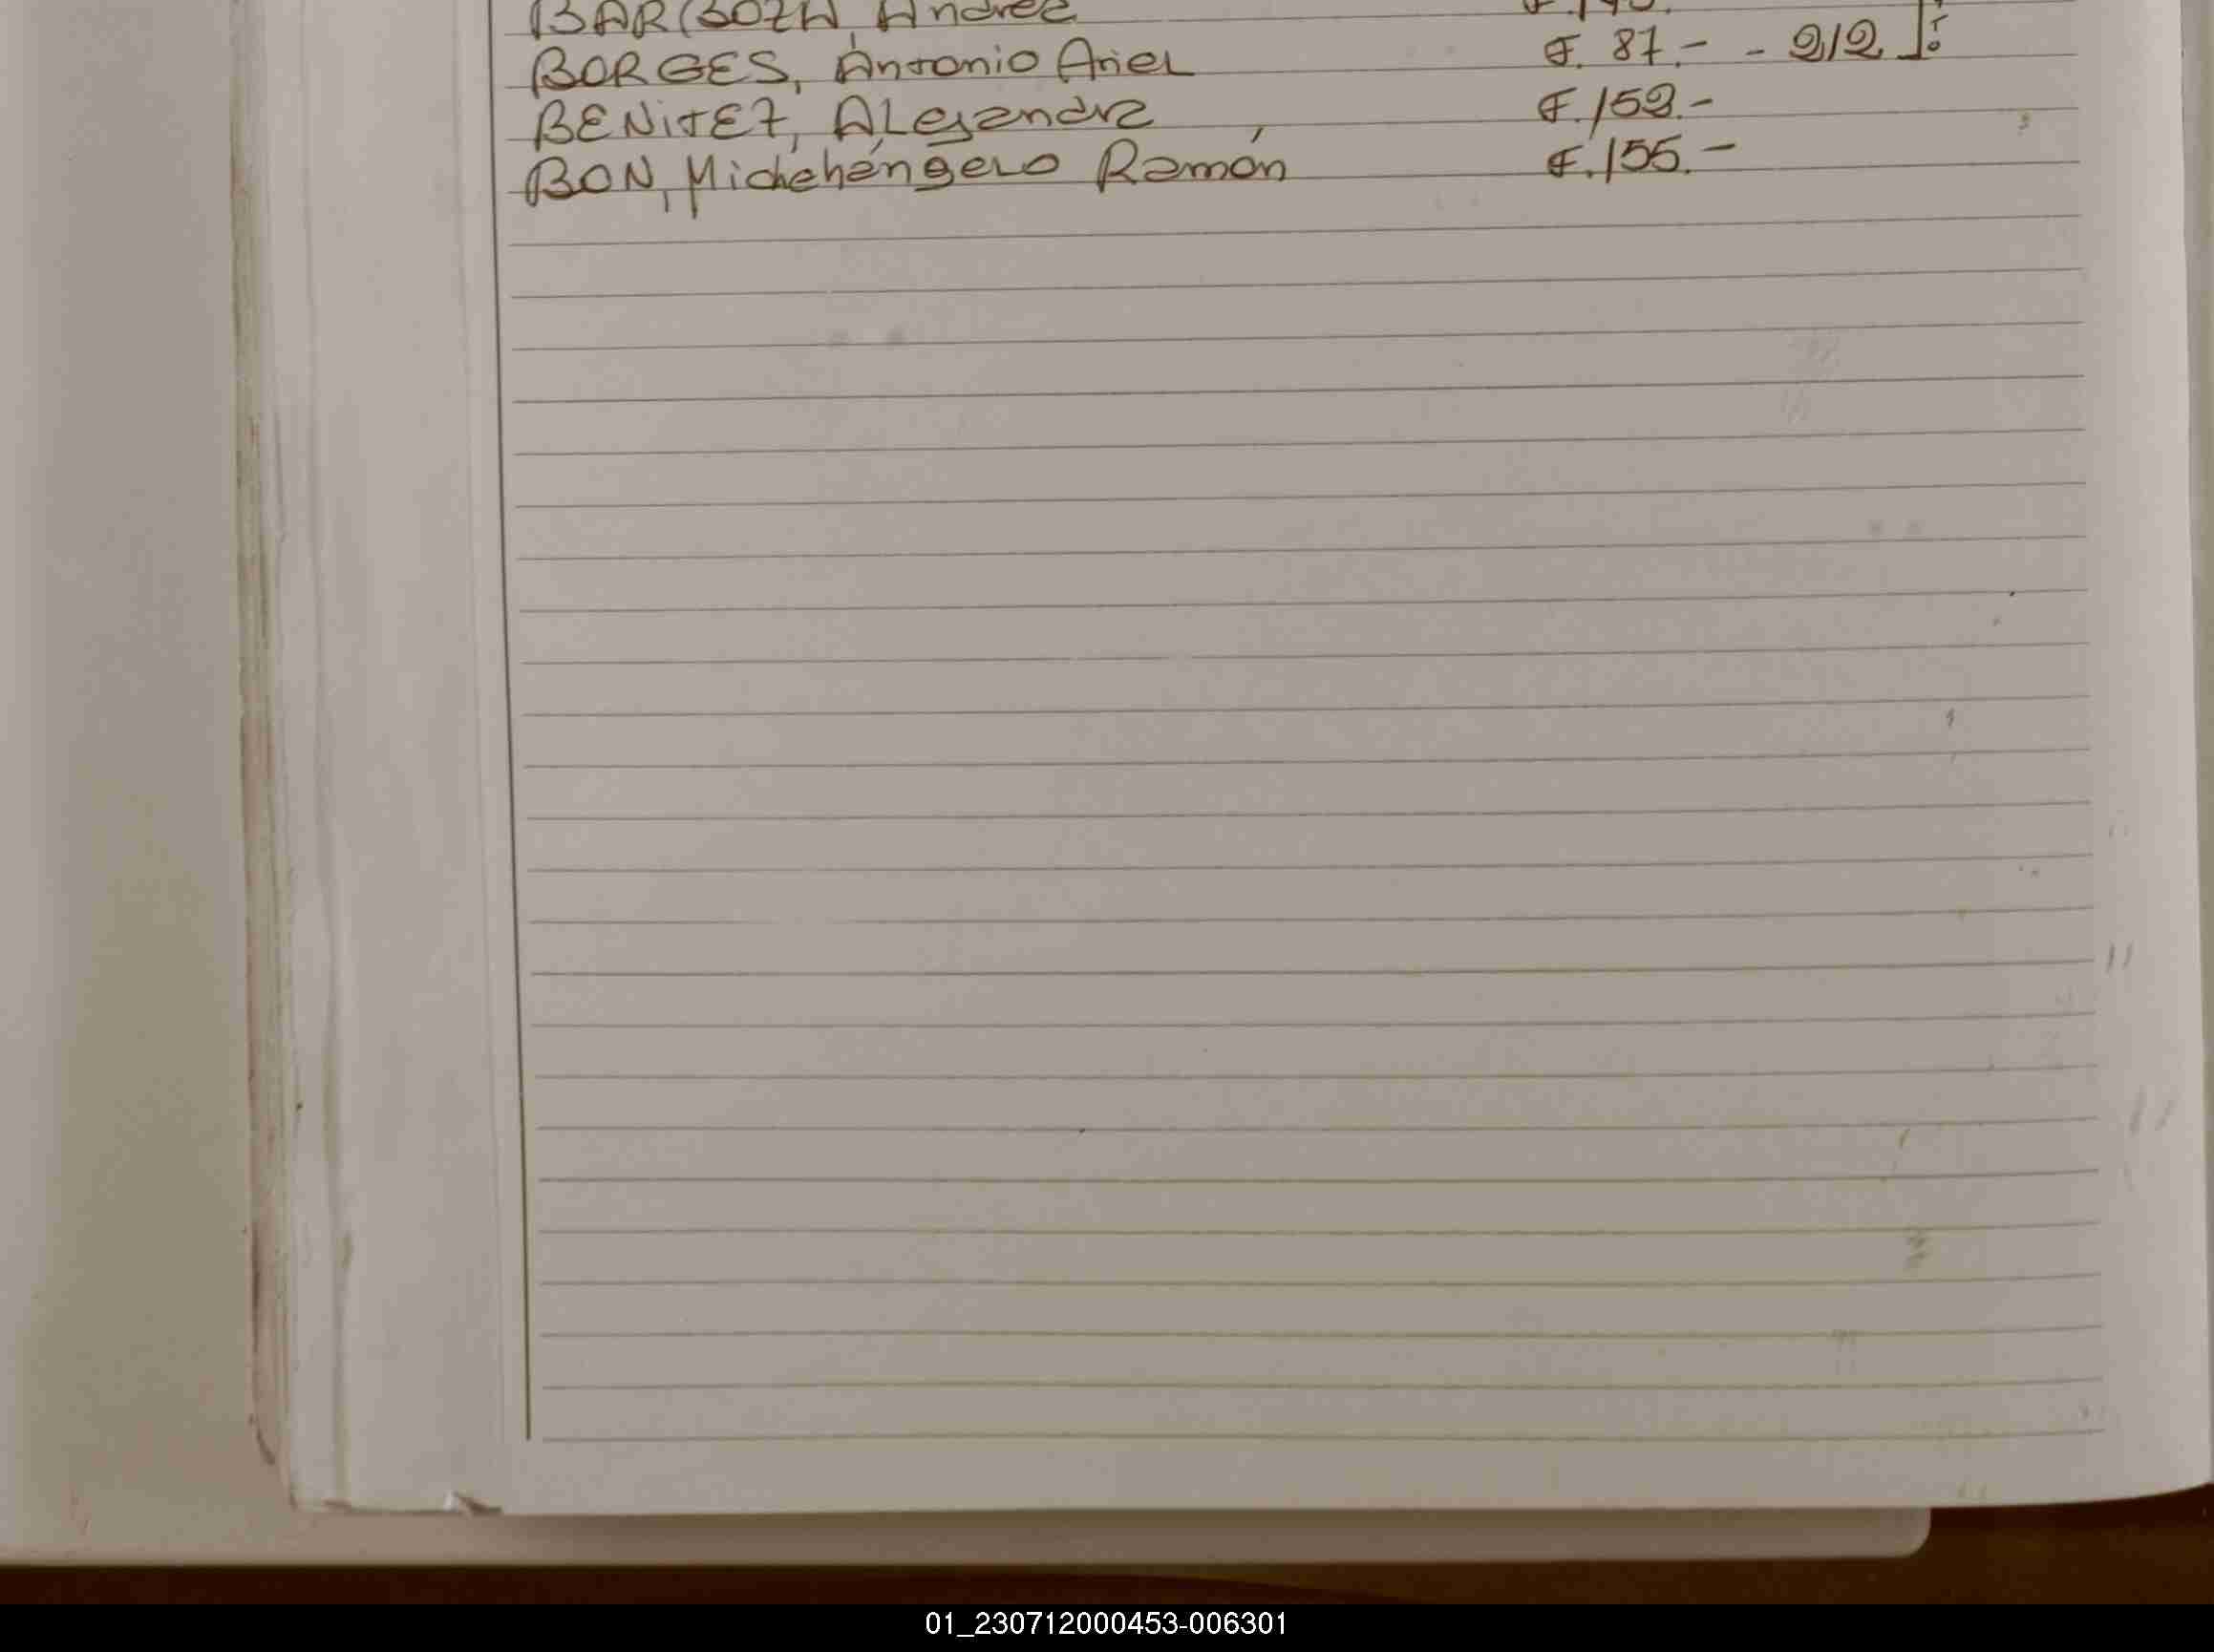 BARBOZA, Andrea F. 148.
BORGES, Antonio Ariel F. 87.- - 212
BENITEZ, Alejandra F. 152.-
BON, Michelángelo Ramón F. 155.-
01_230712000453-006301